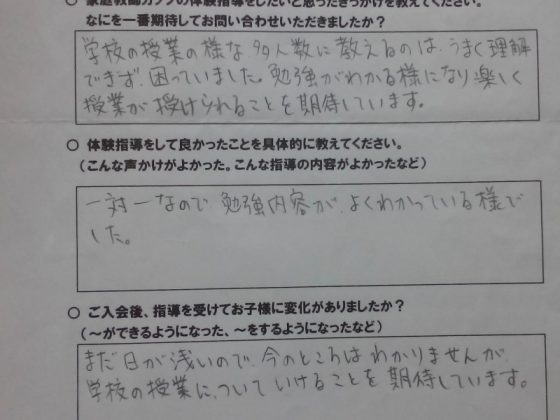 ○ 家庭教師ガンバの体験指導をしたいと思ったきっかけを教えてください。
なにを一番期待してお問い合わせいただきましたか？
学校の授業の様な多人数に教えるのは、うまく理解
できず、困っていました。勉強がわかる様になり楽しく
授業が授けられることを期待しています。
○ 体験指導をして良かったことを具体的に教えてください。
（こんな声かけがよかった。こんな指導の内容がよかったなど）
一対一なので、勉強内容が、よくわかっている様で
した。
○ ご入会後、指導を受けてお子様に変化がありましたか？
（～ができるようになった、～をするようになったなど）
まだ日が浅いので、今のところはわかりませんが、
学校の授業に、ついていけることを期待しています。